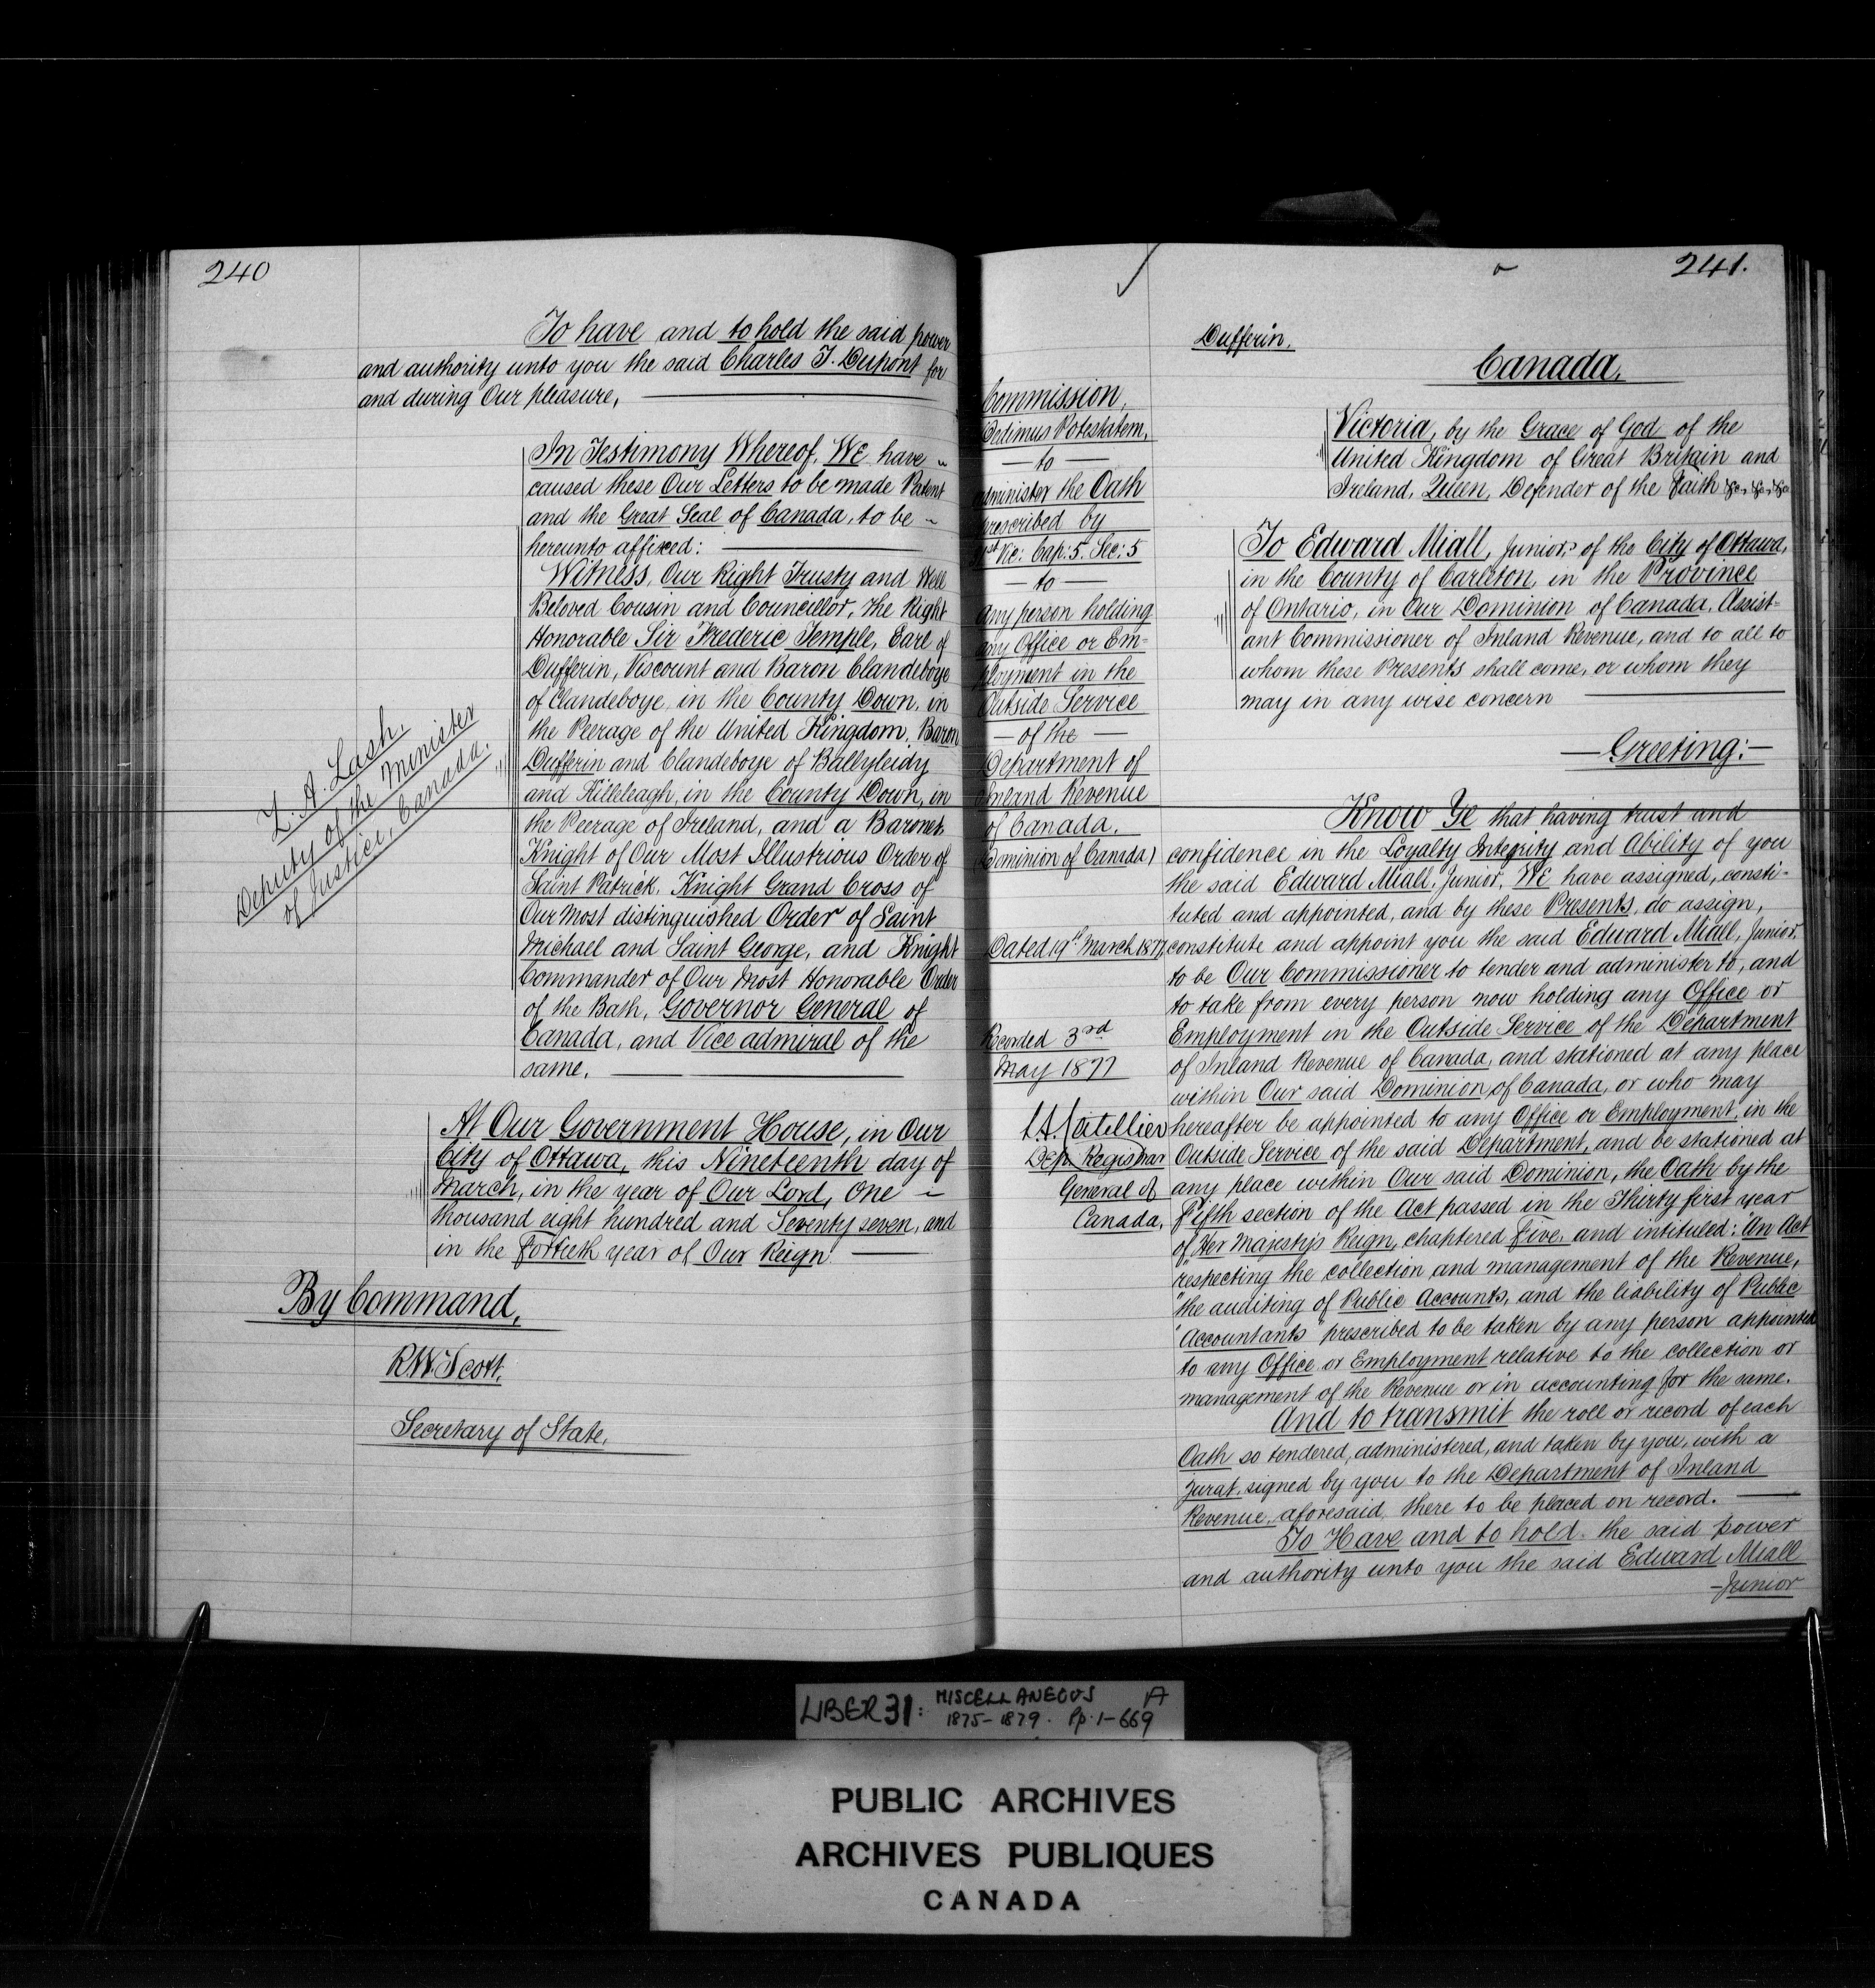 240
To have and to hold the said power
and authority unto you the said Charles T. Dupont for
and during Our pleasure,
In Testimony Whereof, We have
caused these Our Letters to be made Patent
and the Great Seal of Canada, to be
hereunto affixed:
Witness, Our Right Trusty and Well
Beloved Cousin and Councillor, the Right
Honorable Sir Frederic Temple, Earl of
Dufferin, Viscount and Baron Clandeboye
of Clandeboye, in the County Down, in
the Peerage of the United Kingdom, Baron
Dufferin and Clandeboye of Ballyleidy
and Killeleagh, in the County Down, in
the Peerage of Ireland, and a Baronet,
Knight of Our Most Illustrious Order of
Saint Patrick, Knight Grand Cross of
Our Most distinguished Order of Saint
Michael and Saint George, and Knight
Commander of Our Most Honorable Order
of the Bath, Governor General of
Canada, and Vice admiral of the
same.
Z. A. Lash,
Deputy of the Minister
of Justice, Canada.
At Our Government House, in Our
City of Ottawa, this Nineteenth day of
March, in the year of Our Lord, One
thousand eight hundred and Seventy seven, and
in the Fortieth year of Our Reign
By Command,
R. W. Scott,
Secretary of State,
241.
Dufferin,
Canada,
Commission,
Dedimus Potestatem,
— to —
administer the Oath
prescribed by
31st Vic: Cap: 5. Sec: 5
— to —
any person holding
any Office or Em=
ployment in the
Outside Service
— of the —
Department of
Inland Revenue
of Canada.
(Dominion of Canada)
Dated 19th March 1877,
Recorded 3rd
May 1877
Dep. Registrar
General of
Canada,
Victoria, by the Grace of God of the
United Kingdom of Great Britain and
Ireland, Queen, Defender of the Faith &c, &c, &c
To Edward Miall, Junior, of the City of Ottawa,
in the County of Carleton, in the Province
of Ontario, in Our Dominion of Canada, Assist=
ant Commissioner of Inland Revenue, and to all to
whom these Presents shall come, or whom they
may in any wise concern
— Greeting: —
Know Ye that having trust and
confidence in the Loyalty Integrity and Ability of you
the said Edward Miall, Junior, We have assigned, consti=
tuted and appointed, and by these Presents, do assign,
constitute and appoint you the said Edward Miall, Junior,
to be Our Commissioner to tender and administer to, and
to take from every person now holding any Office or
Employment in the Outside Service of the Department
of Inland Revenue of Canada, and stationed at any place
within Our said Dominion of Canada, or who may
hereafter be appointed to any Office or Employment, in the
Outside Service of the said Department, and be stationed at
any place within Our said Dominion, the Oath by the
Fifth section of the Act passed in the Thirty first year
of Her Majesty's Reign, chaptered Five, and intituled: "An Act
"respecting the collection and management of the Revenue,
"the auditing of Public Accounts, and the liability of Public
"Accountants" prescribed to be taken by any person appointed
to any Office or Employment relative to the collection or
management of the Revenue or in accounting for the same.
And to transmit the roll or record of each
Oath so tendered, administered, and taken by you, with a
jurat, signed by you to the Department of Inland
Revenue, aforesaid, there to be placed on record.
To Have and to hold, the said power
and authority unto you the said Edward Miall
—Junior
LIBER 31: MISCELLANEOUS A
1875-1879. Pp. 1-669
PUBLIC ARCHIVES
ARCHIVES PUBLIQUES
CANADA